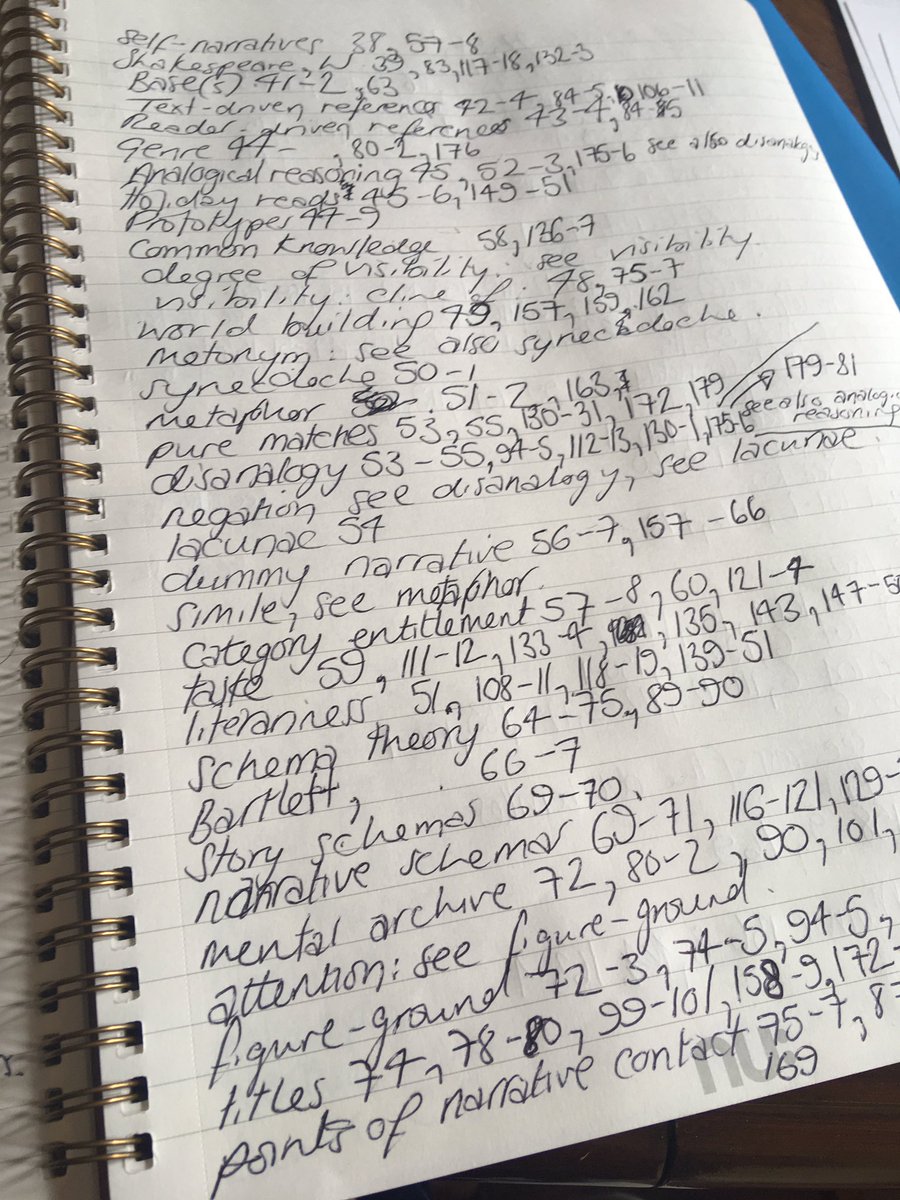 self-narratives 38, 57-8
Shakespeare, W 39, 83, 117-18, 132-3
Base(s) 41-2, 63
Text-driven references 42-4, 84-5, 106-11
Reader-driven references 43-4, 84-85
genre 44- , 80-2, 176
Analogical reasoning 45, 52-3, 175-6 see also disanalogy
Holiday reads 45-6, 149-51
Prototypes 47-9
Common knowledge 58, 136-7
degree of visibility: see visibility
visibility: cline of: 48, 75-7
world building 49, 157, 159, 162
metonym: see also synecdoche.
synecdoche 50-1
metaphor 51-2, 163,
pure matches 53, 55, 130-31, 172, 179 → 179-81
disanalogy 53-55, 94-5, 112-13, 130-1, 175-6 see also analogic reasoning
negation see disanalogy, see lacunae.
lacunae 54
dummy narrative 56-7, 157-66
simile, see metaphor.
category entitlement 57-8, 60, 121-4
taste 59, 111-12, 133-4, 135, 143, 147-50
literariness, 51, 108-11, 118-19, 139-51
schema theory 64-75, 89-90
Bartlett, 66-7
Story schemas 69-70.
narrative schemas 69-71, 116-121, 129-
mental archive 72, 80-2, 90, 101,
attention: see figure-ground.
figure-ground 72-3, 74-5, 94-5,
titles 74, 78-80, 99-101, 158-9, 172-
points of narrative contact 75-7, 87
169
nu